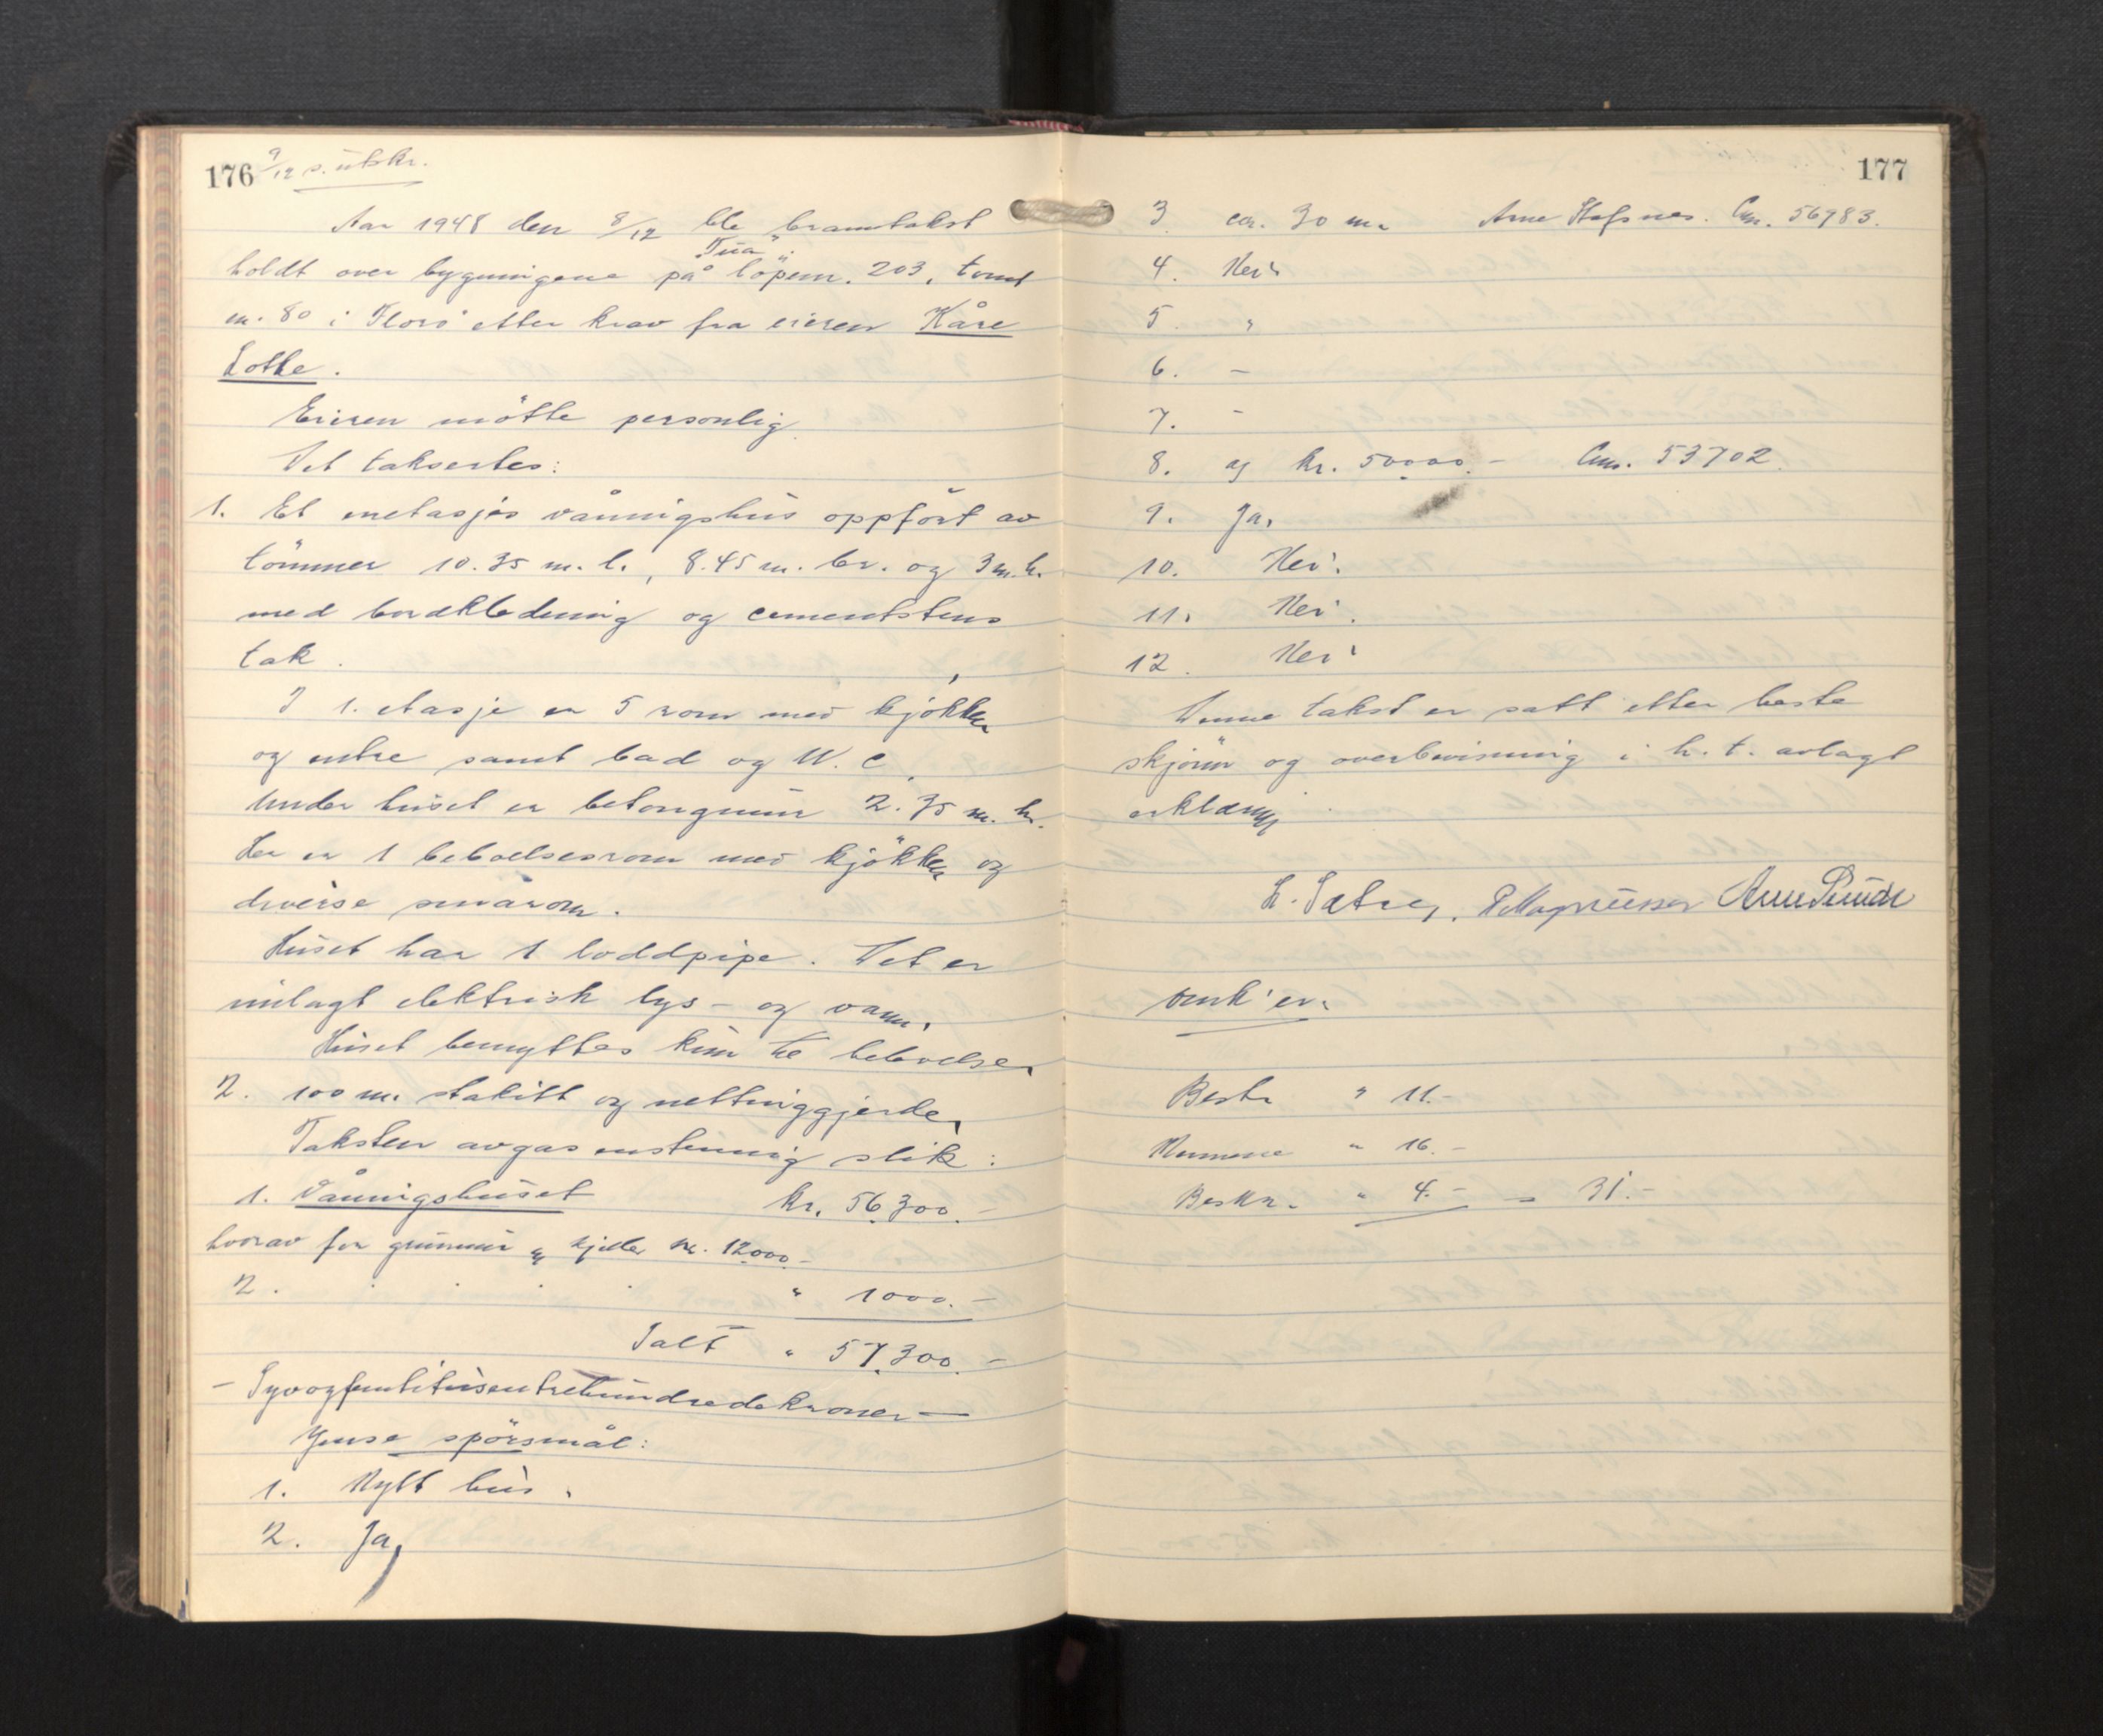 176 9/12 s. utskr.
Aar 1948 den 8/12 ble branntakst
"Tua"
holdt over bygningene på löpenr. 203, tomt
nr. 80 i Florö etter krav fra eieren Kåre
Lothe.
Eieren mötte personlig.
Det taksertes:
1. Et enetasjes våningshus oppfört av
tömmer 10.35 m. l., 8.45 m. br. og 3 m. h.
med bordkledning og cementstens
tak.
I 1. etasje er 5 rom med kjökken
og entre samt bad og W.C.
Under huset er betongmur 2.35 m. h.
Her er 1 beboelsesrom med kjökken og
diverse smårom.
Huset har 1 loddpipe. Det er
innlagt elektrisk lys - og vann.
Huset benyttes kun til beboelse.
2. 100 m. stakitt og nettinggjerde.
Taksten avgas enstemmig slik:
1. Våningshuset kr. 56.300.-
hvorav for grunnmur og kjeller kr. 12.000.-
2. . . . . " 1000.-
Ialt " 57.300.-
- Syvogfemtitusentrehundredekroner -
Ymse spörsmål:
1. Nytt hus.
2. Ja,
177
3. ca. 30 m. Arne Stafsnes. Anr. 56983.
4. Nei.
5. "
6. -
7. -
8. og kr. 50000.- Anr. 53702.
9. Ja.
10. Nei.
11. Nei.
12. Nei.
Denne takst er satt etter beste
skjönn og overbevisning i h. t. avlagt
erklæring.
L. Sætren, P Magnussen Arne Sunde
Omk'er.
Best. " 11.-
Mennene " 16.-
Beskr. " 4.- = 31.-